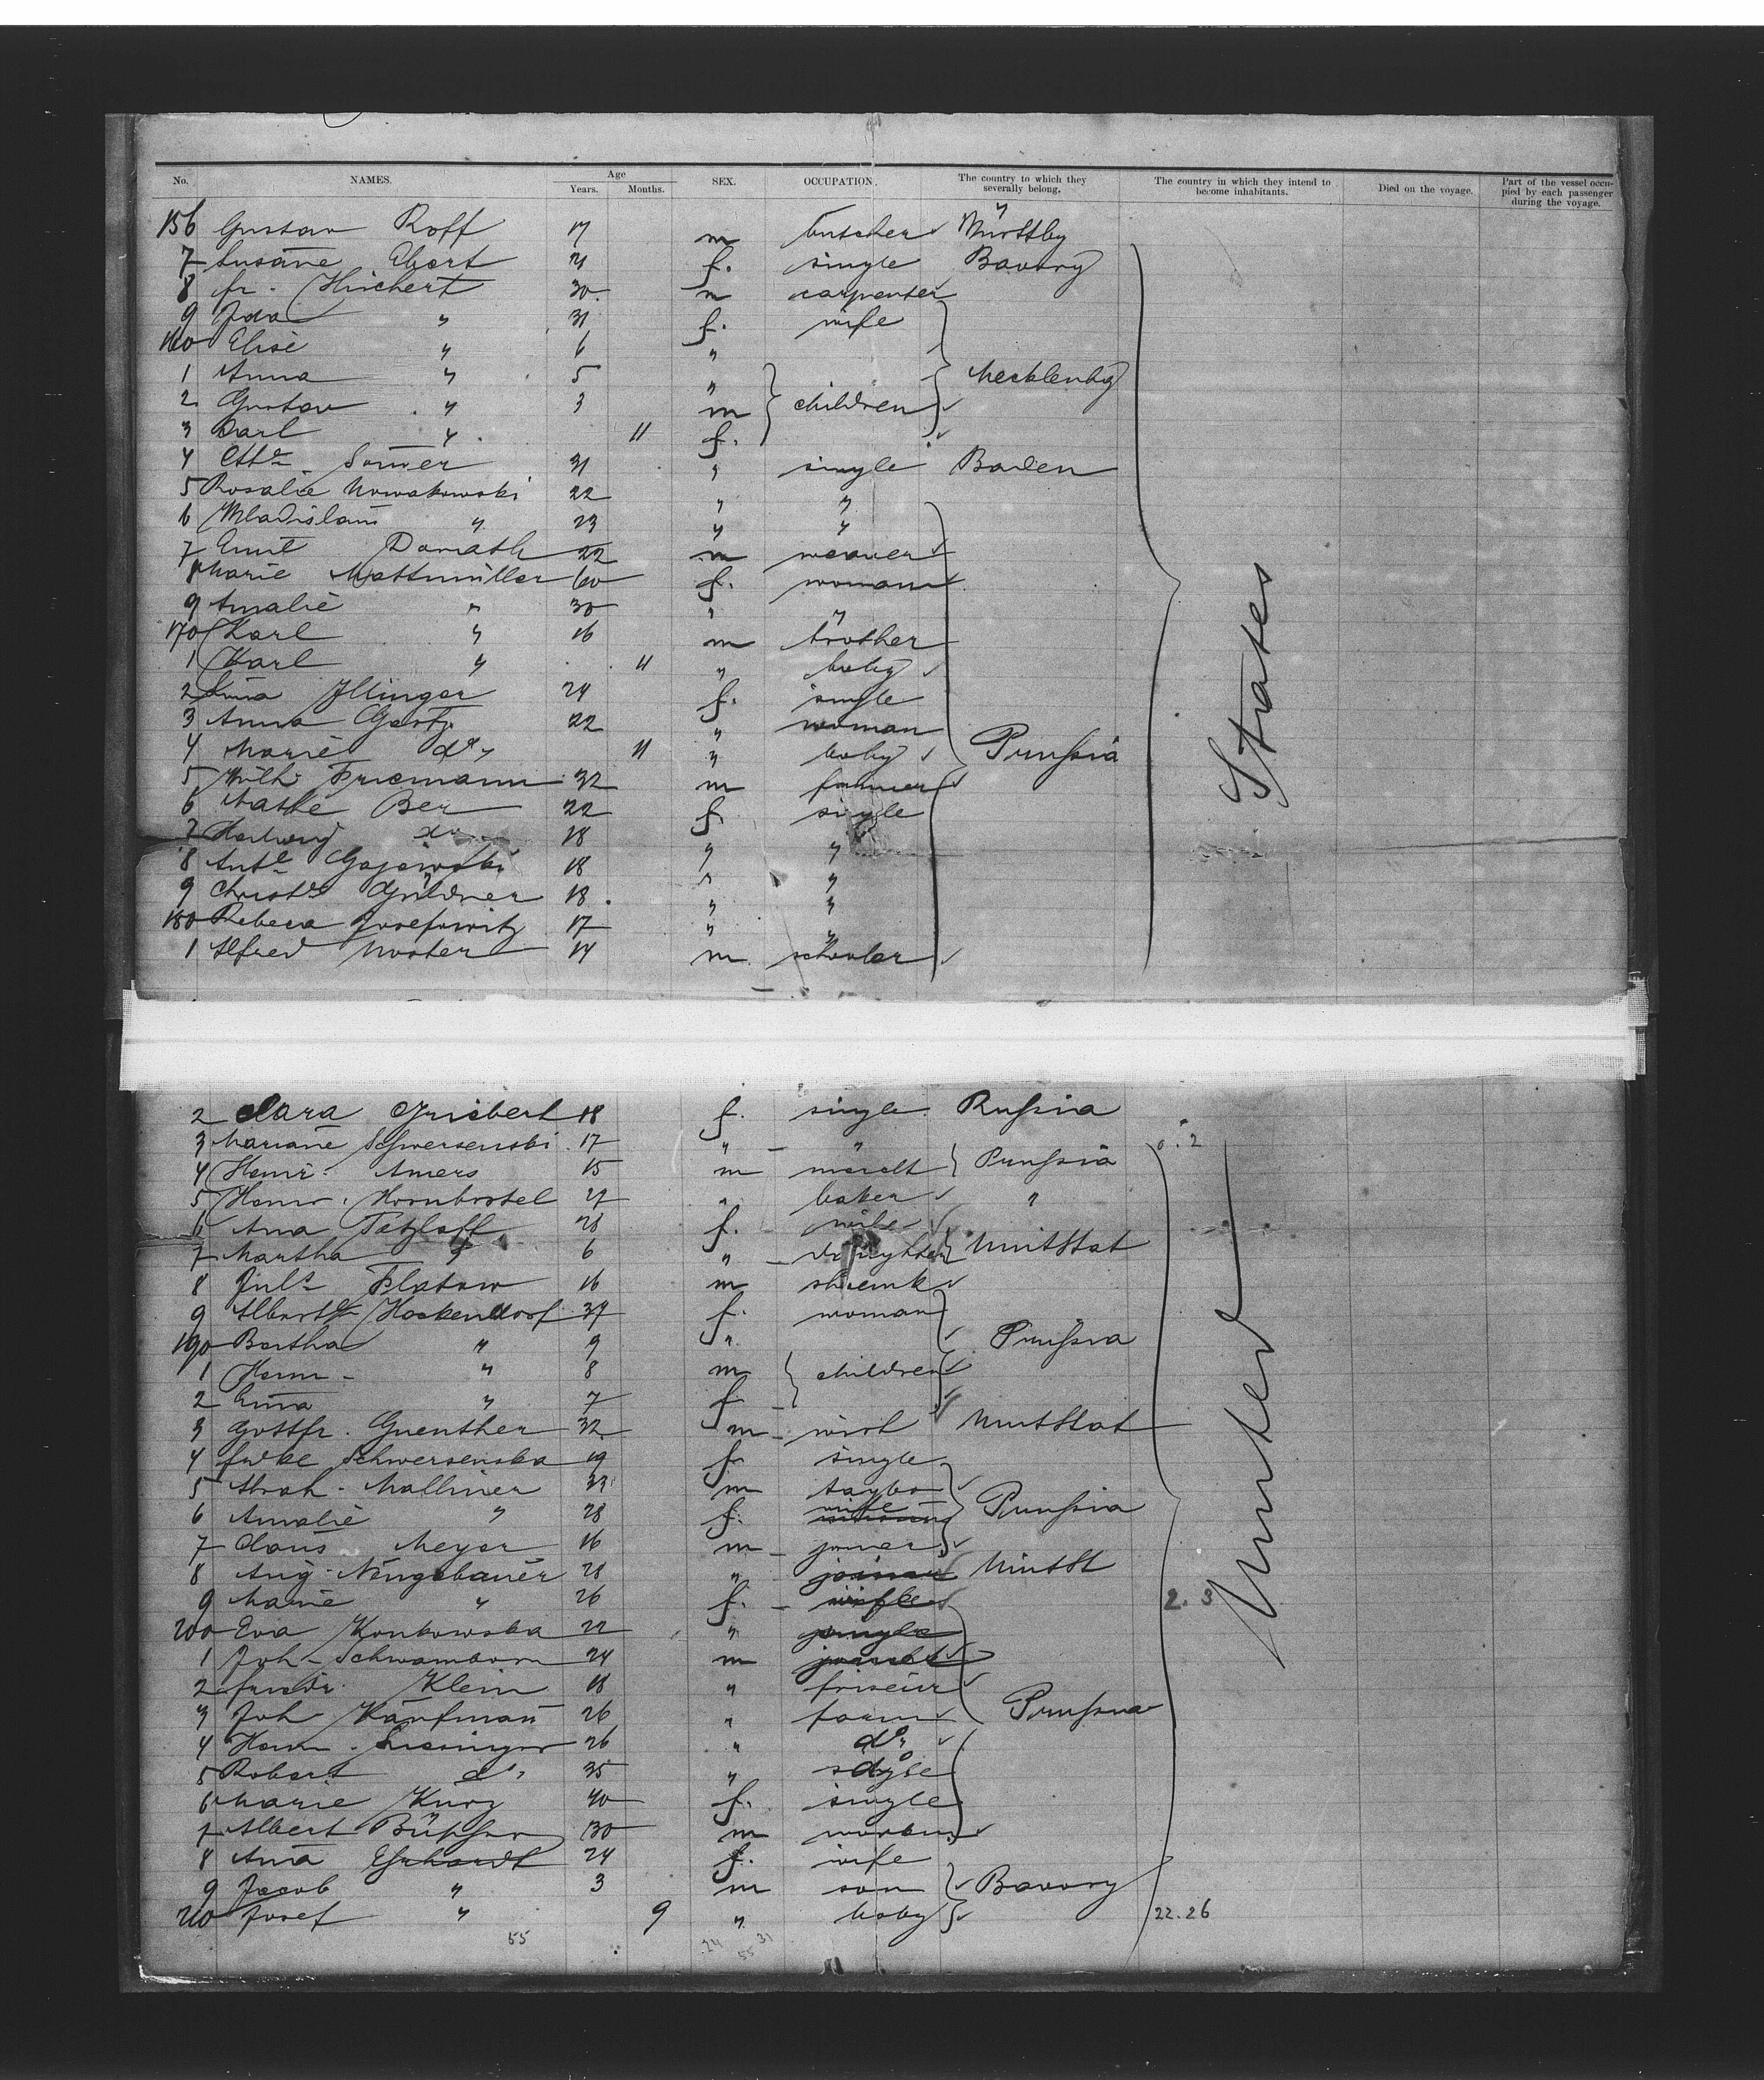 No. NAMES. Age Years. Months. SEX. OCCUPATION. The country to which they severally belong. The country in which they intend to become inhabitants. Died on the voyage. Part of the vessel occupied by each passenger during the voyage.
156 Gustav Roff 17 m butcher Württbg
7 Susane Ebert 21 f. single Bavary
8 fr. Hinchert 30 m carpenter
9 Ida " 31 f. wife
160 Elise " 6 "
1 Anna " 5 " Mecklenbg
2 Gustav " 3 m children
3 Carl " 11 f.
4 Sower 31 " single Baden
5 Rosalie Nowakowski 22 " "
6 Wladislaus " 23 " "
7 Emil Domath 22 m weaver
8 Marie Mattmüller 60 f. woman
9 Amalie " 30 " "
170 Karl " 16 m brother
1 Karl " 11 " baby
2 Lina Illinger 24 f. single
3 Anna Gertz 22 " woman
4 Marie do 11 " baby Prussia
5 Wilh. Friemann 32 m farmer
6 Ber 22 f. single
7 Hedwig do 18 " "
8 Gajewski 18 " "
9 Christe Gürdner 18 " "
180 Rebeca Josefowitz 17 " "
1 Alfred Noster 14 m schoolar
States
2 Clara Griebert 18 f. single Russia
3 Mariane Schwersenski 17 " "
4 Heinr. Amers 15 m Prussia
5 Hornbostel 27 " baker "
6 Ana Tetzlaff 28 f. wife
7 Martha " 6 " daughter UnitStat
8 Juls Flatow 16 m shoemk
9 Hockendorf 37 f. woman
190 Bertha " 9 " Prussia
1 Herm. " 8 m children
2 Ema " 7 f
3 Gottfr. Guenther 32 m wirt UnitStat
4 Schwersenska 19 f single
5 Abrah. Malliner 33 m taylor
6 Amalie " 28 f. wife Prussia
7 Claus Meyer 16 m joiner
8 Aug. Neugebauer 28 " joiner UnitSt
9 Marie " 26 f. wife 2. 3
200 Eva Konkowska 22 " single
1 Joh. Schwamborn 24 m
2 friedr. Klein 18 " friseur
3 Joh Kaufman 26 " farm Prussia
4 Herm. 26 " do
5 Robert do 35 "
6 Marie Kurz 40 f. single
7 Albert 30 m
8 Ana Ehrhardt 24 f. wife
9 Jacob " 3 m son Bavary
210 Josef " 9 " baby 22.26
United
55 24 31
55